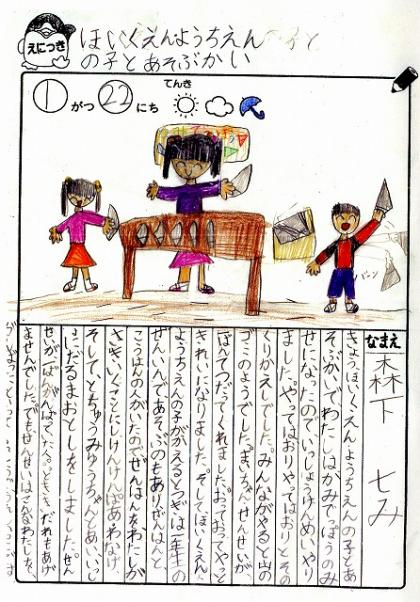 えにっき
ほいくえん、ようちえん
の子とあそぶかい
1がつ22にち
てんき
パーン
なまえ 森下 七み
きょう、ほいくえんようちえんの子とあ
そぶかいでわたしはかみでっぽうのみ
せになったので、いっしょうけんめいやり
ました。やってはおりやってはおりとその
くりかえしでした。みんながやると山の
ゴミのようでした。
せんせいが、
てつだってくれました。おっておってやっと
きれいになりました。そしてほいくえん
ようちえんの子がかえるとつぎは一年生の
ぜんいんであそぶのもあり、ぜんはんと、
こうはんの人がいたのでぜんはんをわたしが
さきにいくことにしけんけんぱあ、わなげ、
そしてとちゅうみゅうちゃんとあい、いっしょ
にだるまおとしをしました。せん
せいが
だれもあげ
ませんでした。でもせんせいはこんなわたしを、